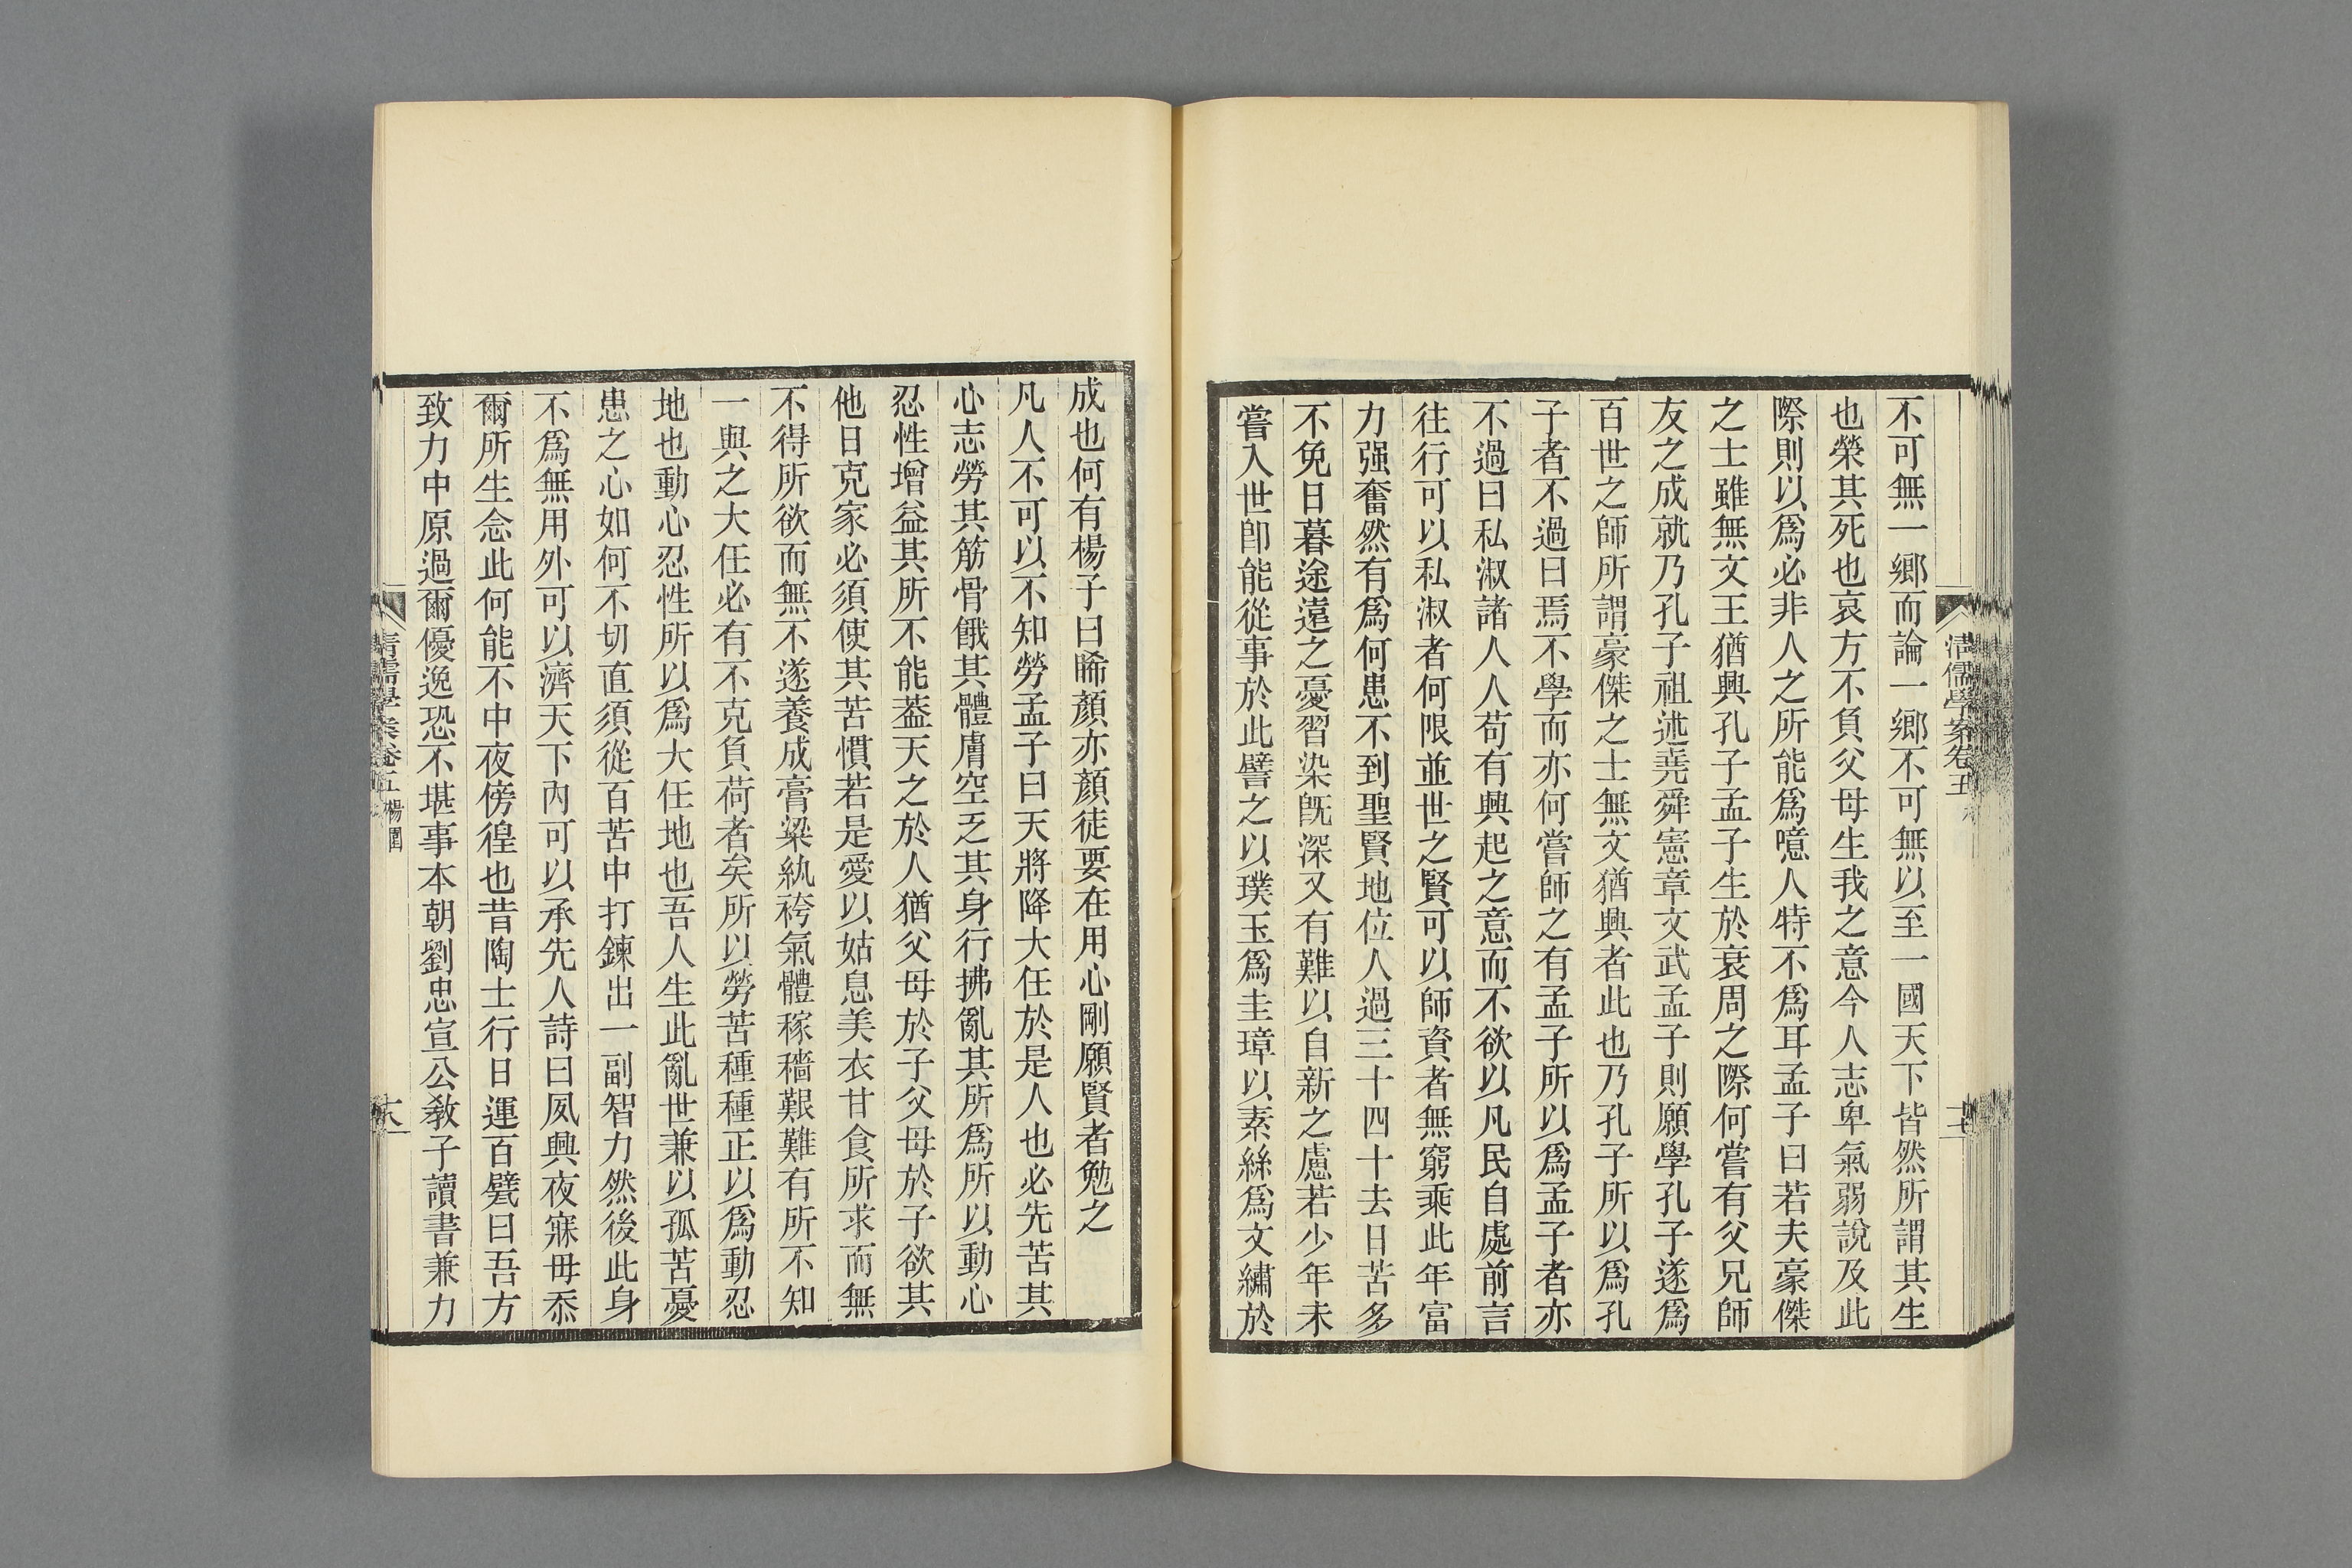 清儒學案卷五
不可無一鄉而論一鄉不可無以至一國天下皆然所謂其生
也榮其死也哀方不負父母生我之意今人志卑氣弱說及此
際則以爲必非人之所能爲噫人特不爲耳孟子曰若夫豪傑
之士雖無文王猶興孔子孟子生於衰周之際何嘗有父兄師
友之成就乃孔子祖述堯舜憲章文武孟子則願學孔子遂爲
百世之師所謂豪傑之士無文猶興者此也乃孔子所以爲孔
子者不過曰焉不學而亦何嘗師之有孟子所以爲孟子者亦
不過曰私淑諸人人苟有興起之意而不欲以凡民自處前言
往行可以私淑者何限並世之賢可以師資者無窮乘此年富
力强奮然有爲何患不到聖賢地位人過三十四十去日苦多
不免日暮途遠之憂習染既深又有難以自新之慮若少年未
嘗入世即能從事於此譬之以璞玉爲圭璋以素絲爲文繡於
成也何有楊子曰睎顏亦顏徒要在用心剛願賢者勉之
凡人不可以不知勞孟子曰天將降大任於是人也必先苦其
心志勞其筋骨餓其體膚空乏其身行拂亂其所爲所以動心
忍性增益其所不能葢天之於人猶父母於子父母於子欲其
他日克家必須使其苦慣若是愛以姑息美衣甘食所求而無
不得所欲而無不遂養成膏粱紈袴氣體稼穡艱難有所不知
一與之大任必有不克負荷者矣所以勞苦種種正以爲動忍
地也動心忍性所以爲大任地也吾人生此亂世兼以孤苦憂
患之心如何不切直須從百苦中打鍊出一副智力然後此身
不爲無用外可以濟天下內可以承先人詩曰夙興夜寐毋忝
爾所生念此何能不中夜傍徨也昔陶士行日運百甓曰吾方
致力中原過爾優逸恐不堪事本朝劉忠宣公敎子讀書兼力
清儒學案卷五 楊園
六